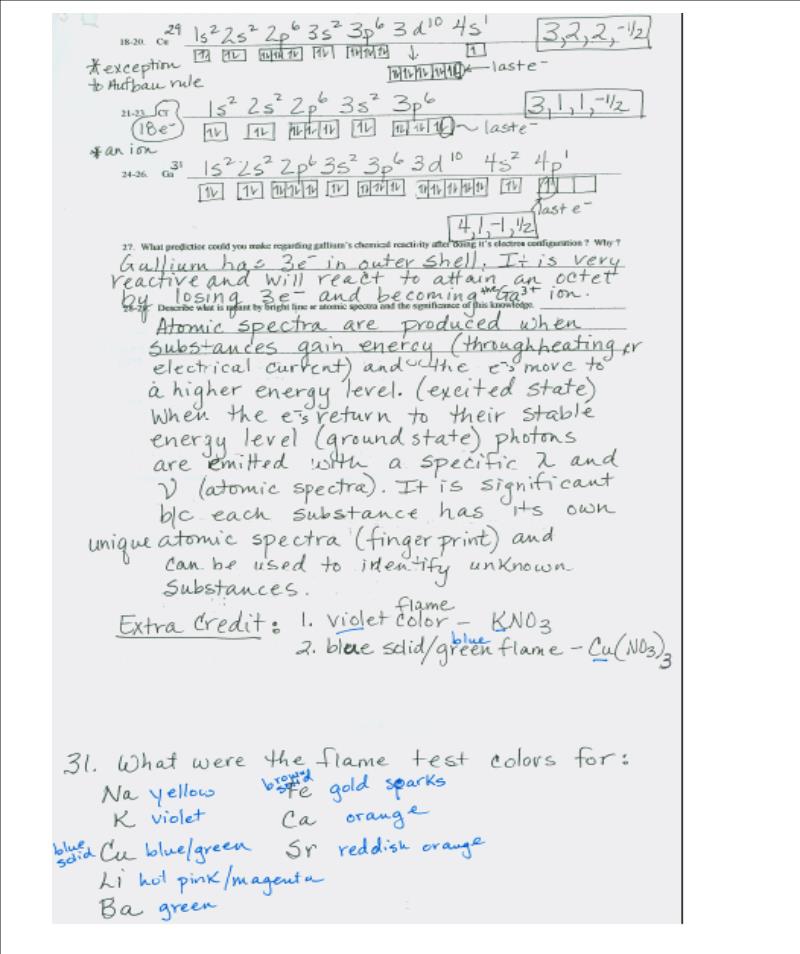 18-20. Cu 29 1s² 2s² 2p⁶ 3s² 3p⁶ 3d¹⁰ 4s¹ 3,2,2,-1/2
*exception
to Aufbau rule
last e⁻
21-23. Cl⁻ 1s² 2s² 2p⁶ 3s² 3p⁶ 3,1,1,-1/2
18e⁻
last e⁻
*an ion
24-26. Ga 31 1s² 2s² 2p⁶ 3s² 3p⁶ 3d¹⁰ 4s² 4p¹
last e⁻
4,1,-1,1/2
27. What prediction could you make regarding gallium's chemical reactivity after doing it's electron configuration? Why?
Gallium has 3e⁻ in outer shell. It is very
reactive and will react to attain an octet
by losing 3e⁻ and becoming the Ga³⁺ ion.
Describe what is meant by bright line or atomic spectra and the significance of this knowledge.
Atomic spectra are produced when
substances gain energy (through heating or
electrical current) and the e⁻s move to
a higher energy level. (excited state)
When the e⁻s return to their stable
energy level (ground state) photons
are emitted with a specific λ and
ν (atomic spectra). It is significant
b/c each substance has its own
unique atomic spectra (fingerprint) and
can be used to identify unknown
substances.
Extra Credit: 1. violet flame color - KNO3
2. blue solid/blue green flame - Cu(NO3)3
31. What were the flame test colors for:
Na yellow brown solid Fe gold sparks
K violet Ca orange
blue solid Cu blue/green Sr reddish orange
Li hot pink/magenta
Ba green